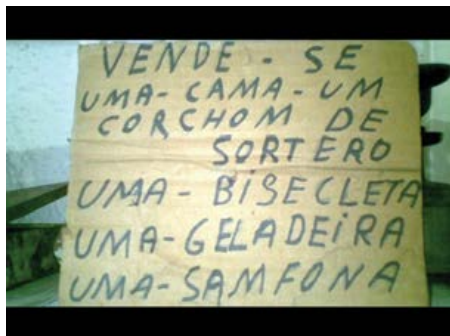 VENDE - SE
UMA - CAMA - UM
CORCHOM DE
SORTERO
UMA - BISECLETA
UMA - GELADEIRA
UMA - SAMFONA